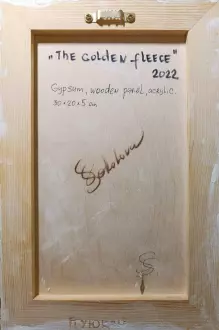 „THE GOLDEN FLEECE"
2022
Gypsum, wooden panel, acrylic.
30×20×5 cm